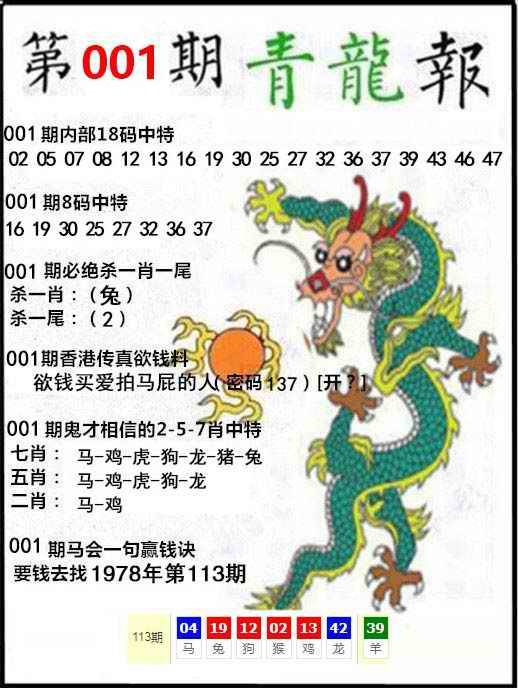 第001期青龍報
001期内部18码中特
02 05 07 08 12 13 16 19 30 25 27 32 36 37 39 43 46 47
001期8码中特
16 19 30 25 27 32 36 37
001 期必绝杀一肖一尾
杀一肖：（兔）
杀一尾：（2）
001期香港传真欲钱料
欲钱买爱拍马屁的人(密码137）[开？]
001期鬼才相信的2-5-7肖中特
七肖： 马-鸡-虎-狗-龙-猪-兔
五肖： 马-鸡-虎-狗-龙
二肖： 马-鸡
001期马会一句赢钱诀
要钱去找1978年第113期
113期 04 19 12 02 13 42 39
马 兔 狗 猴 鸡 龙 羊